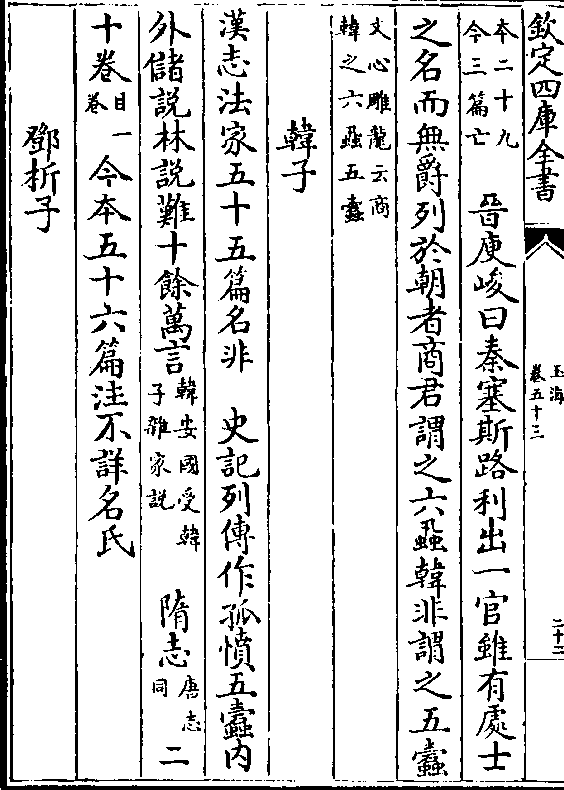 欽定四庫全書
玉海
卷五十三
二十二
本二十九
今三篇亡
晉庾峻曰秦塞斯路利出一官雖有處士
之名而無爵列於朝者商君謂之六蝨韓非謂之五蠹
文心雕龍云商
韓之六蝨五蠹
韓子
漢志法家五十五篇名非 史記列傳作孤憤五蠹內
外儲說林說難十餘萬言韓安國受韓
子雜家說 隋志唐志
同二
十卷目一
卷 今本五十六篇注不詳名氏
鄧析子